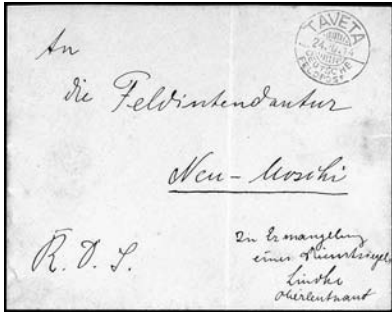 TAVETA
24.10.14
DEUTSCHE
FELDPOST
An
die Feldintendantur
Neu-Moschi
R. D. S.
In Ermangelung
eines Dienstsiegels
Lindke
Oberleutnant